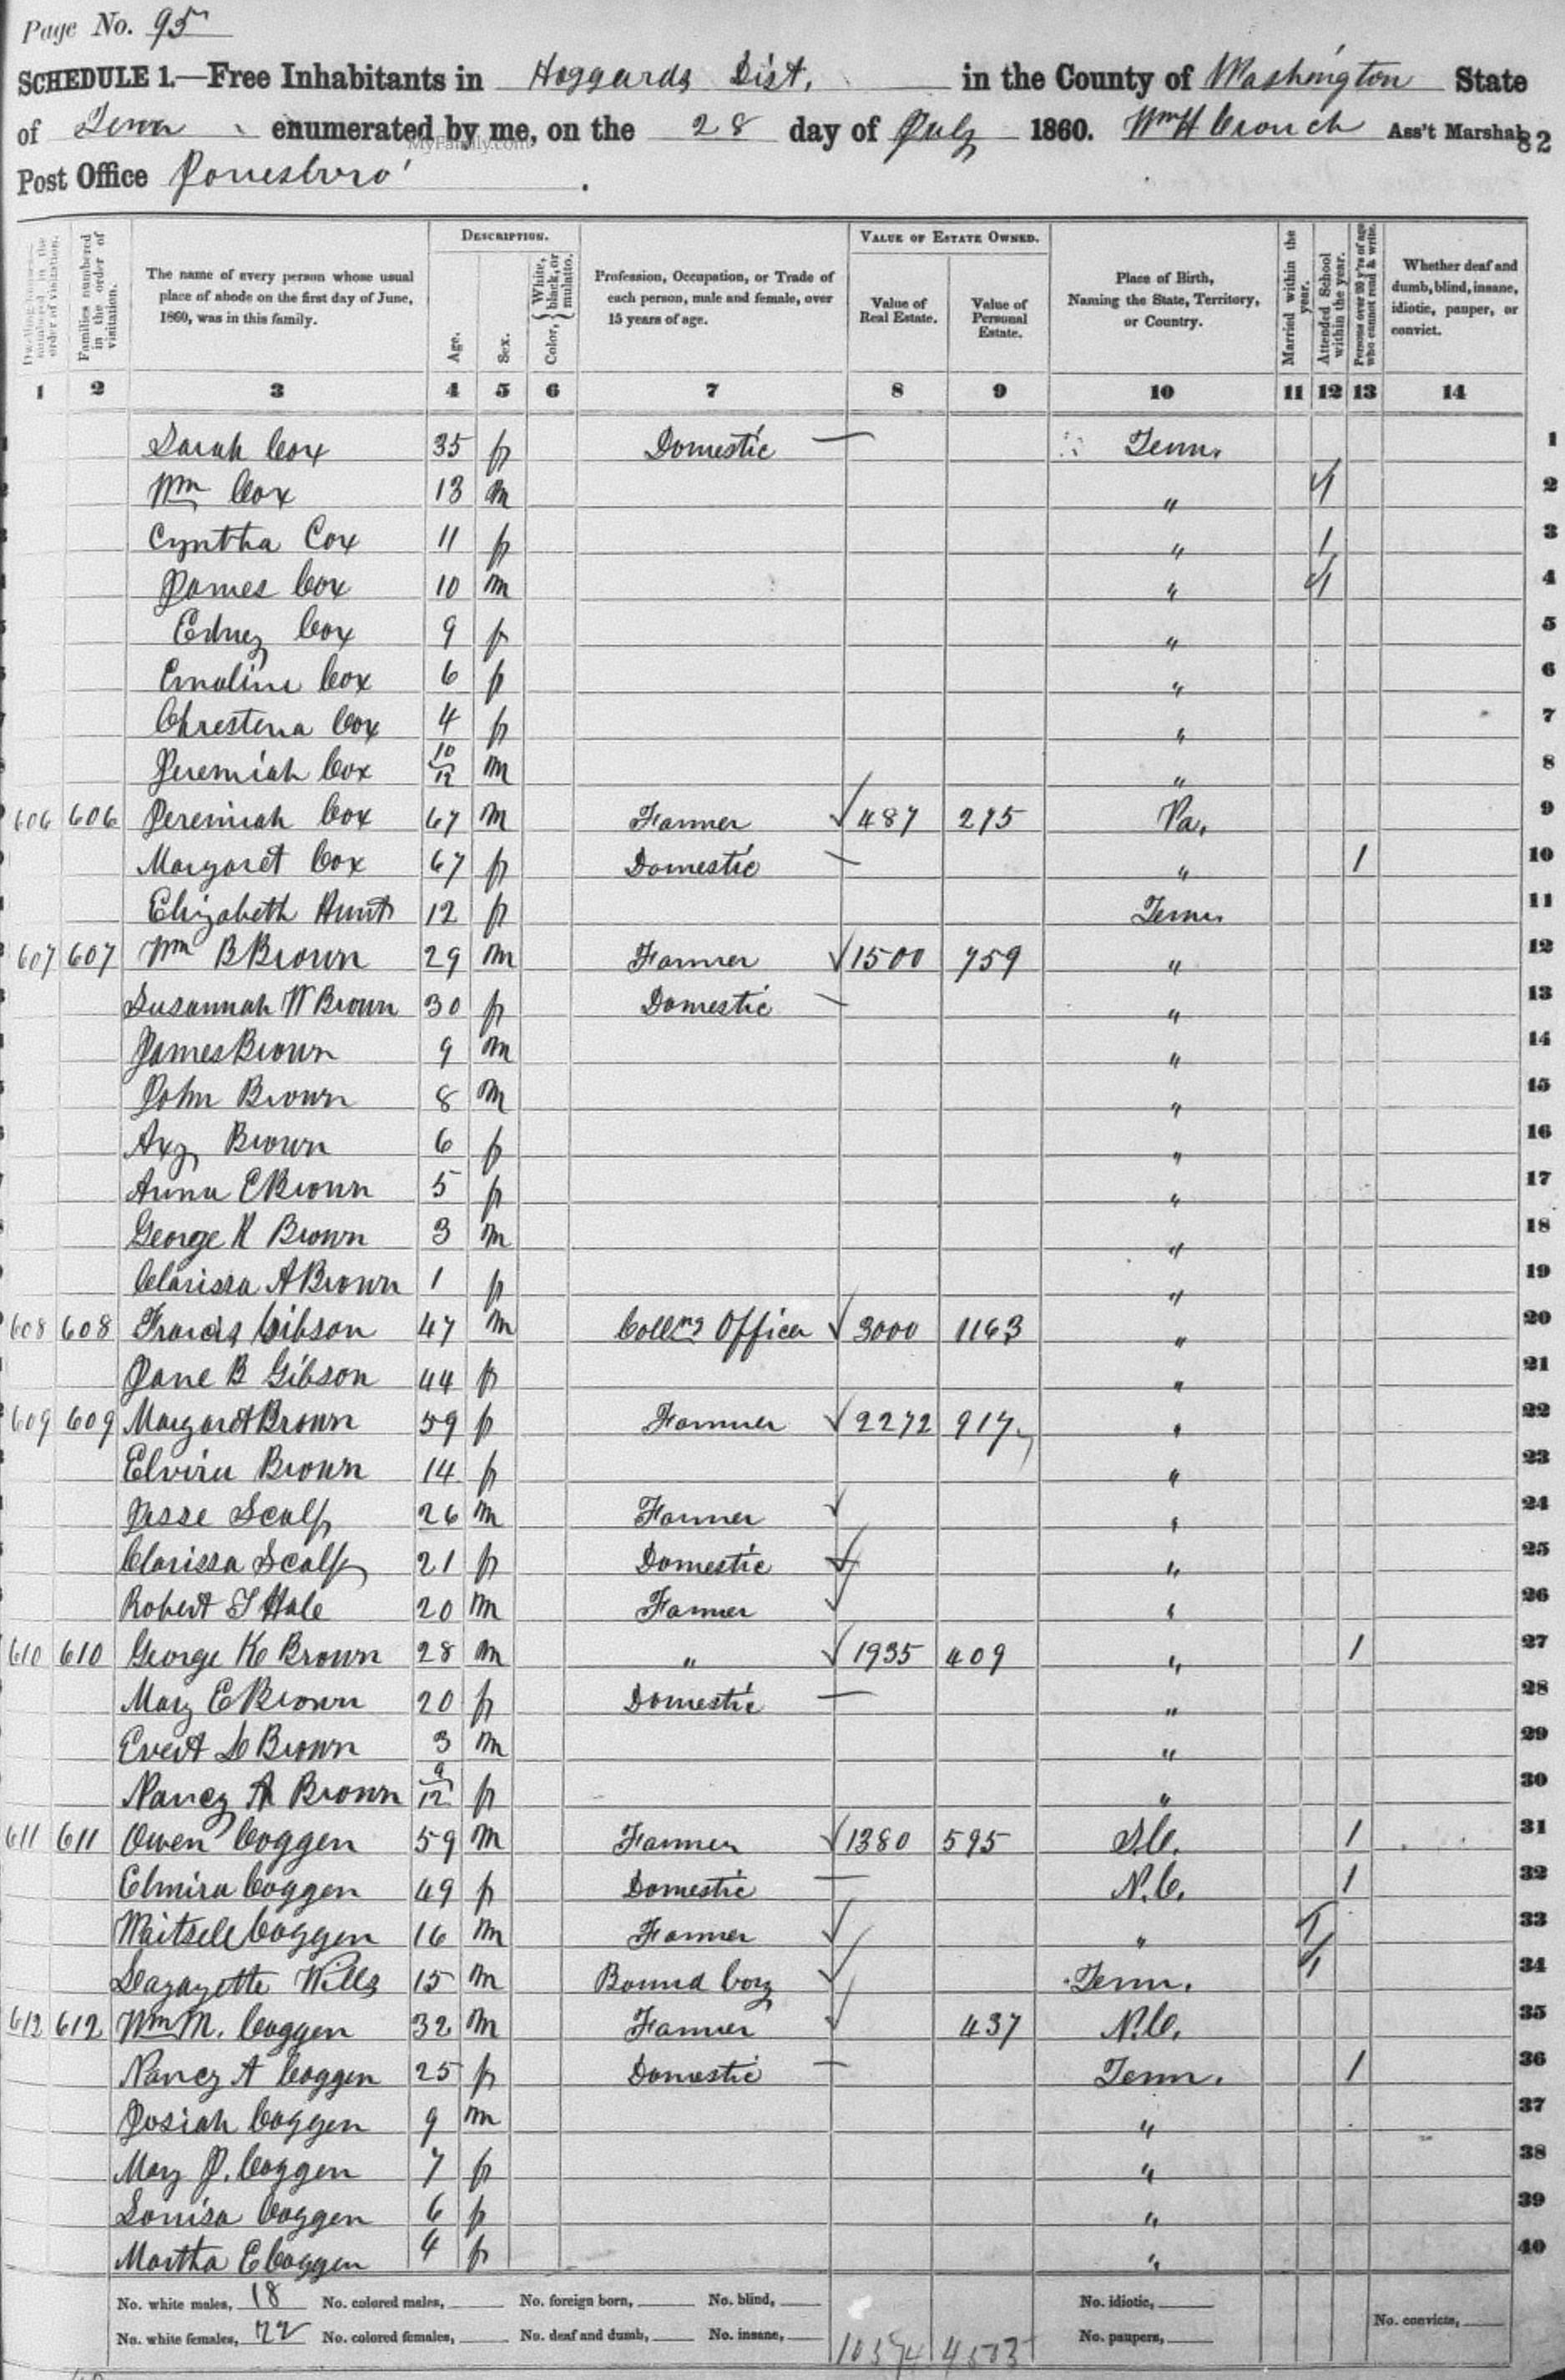 Page No. 95
SCHEDULE 1.—Free Inhabitants in Hoggards Dist. in the County of Washington State
of Tenn enumerated by me, on the 28 day of July 1860. Wm H Crouch Ass't Marshal
82
MyFamily.com
Post Office Jonesboro'
Dwelling-houses— numbered in the order of visitation.
Families numbered in the order of visitation.
The name of every person whose usual place of abode on the first day of June, 1860, was in this family.
DESCRIPTION.
Age.
Sex.
Color, {White, black, or mulatto.
Profession, Occupation, or Trade of each person, male and female, over 15 years of age.
VALUE OF ESTATE OWNED.
Value of Real Estate.
Value of Personal Estate.
Place of Birth, Naming the State, Territory, or Country.
Married within the year.
Attended School within the year.
Persons over 20 y'rs of age who cannot read & write.
Whether deaf and dumb, blind, insane, idiotic, pauper, or convict.
1 2 3 4 5 6 7 8 9 10 11 12 13 14
Sarah Cox 35 f Domestic — Tenn. 1
Wm Cox 13 m " 1 2
Cyntha Cox 11 f " 1 3
James Cox 10 m " 1 4
Edney Cox 9 f " 5
Emaline Cox 6 f " 6
Chrestena Cox 4 f " 7
Jeremiah Cox 10/12 m " 8
606 606 Jeremiah Cox 67 m Farmer ✓ 487 275 Pa. 9
Margaret Cox 67 f Domestic — " 1 10
Elizabeth Hunt 12 f Tenn. 11
607 607 Wm B Brown 29 m Farmer ✓ 1500 759 " 12
Susannah W Brown 30 f Domestic — " 13
James Brown 9 m " 14
John Brown 8 m " 15
Axy Brown 6 f " 16
Anna E Brown 5 f " 17
George R Brown 3 m " 18
Clarissa A Brown 1 f " 19
608 608 Francis Gibson 47 m Colling Officer ✓ 3000 1163 " 20
Jane B Gibson 44 f " 21
609 609 Margaret Brown 59 f Farmer ✓ 2272 917 " 22
Elvira Brown 14 f " 23
Jesse Scalf 26 m Farmer ✓ " 24
Clarissa Scalf 21 f Domestic ✓ " 25
Robert T Hale 20 m Farmer ✓ " 26
610 610 George K Brown 28 m " ✓ 1935 409 " 1 27
Mary E Brown 20 f Domestic — " 28
Evert L Brown 3 m " 29
Nancy A Brown 9/12 f " 30
611 611 Owen Coggen 59 m Farmer ✓ 1380 595 S.C. 1 31
Elmira Coggen 49 f Domestic — N.C. 1 32
Waitsele Coggen 16 m Farmer ✓ " 1 33
Lagayette Wills 15 m Bound boy ✓ Tenn. 1 34
612 612 Wm M. Coggen 32 m Farmer ✓ 437 N.C. 35
Nancy A Coggen 25 f Domestic — Tenn. 1 36
Josiah Coggen 9 m " 37
Mary J. Coggen 7 f " 38
Louisa Coggen 6 f " 39
Martha E Coggen 4 f " 40
No. white males, 18 No. colored males, No. foreign born, No. blind, No. idiotic,
No. white females, 22 No. colored females, No. deaf and dumb, No. insane, 10574 4503 No. paupers, No. convicts,